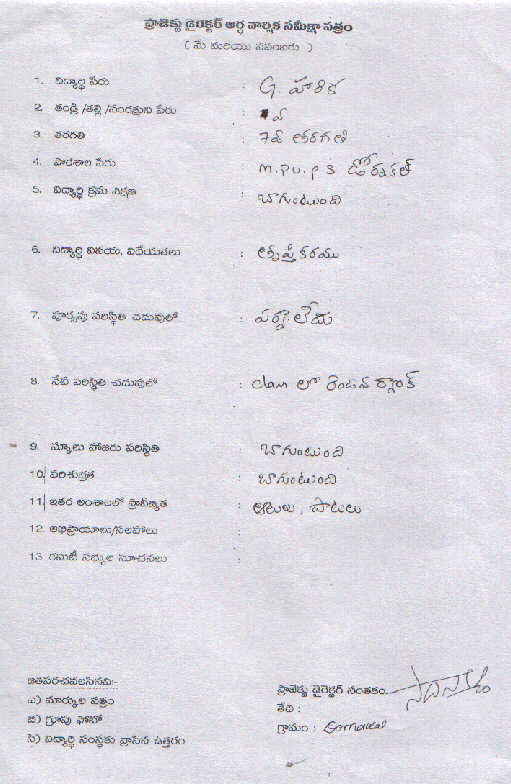 ప్రాజెక్టు డైరెక్టర్ అర్ధ వార్షిక సమీక్షా పత్రం
( మే మరియు నవంబరు )
1. విద్యార్థి పేరు : G. హారిక
2. తండ్రి /తల్లి /సంరక్షకుని పేరు :
3. తరగతి : 7వ తరగతి
4. పాఠశాల పేరు : M.P.U.P.S డోర్నకల్
5. విద్యార్థి క్రమ శిక్షణ : బాగుంటుంది
6. విద్యార్థి వినయ, విధేయతలు : తృప్తికరము
7. పూర్వపు పరిస్థితి చదువులో : పర్వాలేదు
8. నేటి పరిస్థితి చదువులో : class లో రెండవ ర్యాంక్
9. స్కూలు హాజరు పరిస్థితి : బాగుంటుంది
10. పరిశుభ్రత : బాగుంటుంది
11. ఇతర అంశాలలో ప్రావీణ్యత : ఆటలు, పాటలు
12. అభిప్రాయాలు/సలహాలు :
13. కమిటీ సభ్యుల సూచనలు :
జతపరచవలసినవి:-
ఎ) మార్కుల పత్రం
బి) గ్రూపు ఫోటో
సి) విద్యార్థి సంస్థకు వ్రాసిన ఉత్తరం
ప్రాజెక్టు డైరెక్టర్ సంతకం.
తేది :
గ్రామం : Dornakal